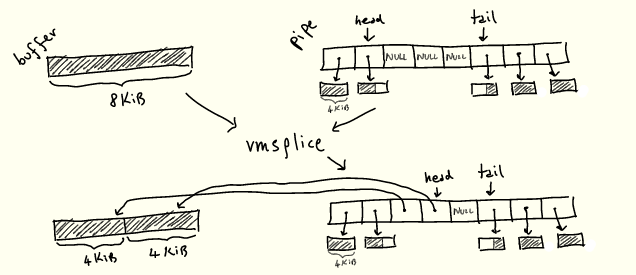 buffer
8KiB
pipe
head
tail
NULL NULL NULL
4KiB
vmsplice
head
tail
NULL
4KiB 4KiB
4KiB